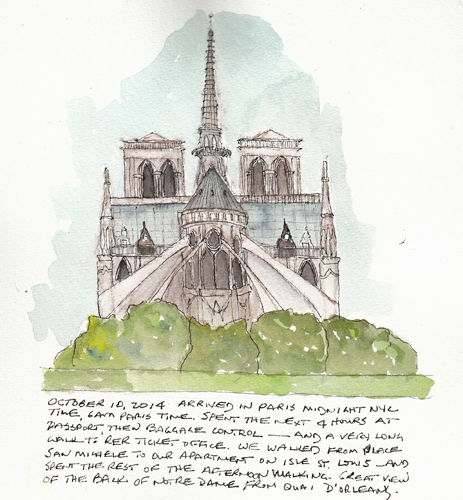 OCTOBER 10, 2014. ARRIVED IN PARIS MIDNIGHT NYC
TIME, 6AM PARIS TIME. SPENT THE NEXT 4 HOURS AT
PASSPORT, THEN BAGGAGE CONTROL — AND A VERY LONG
WALK TO RER TICKET OFFICE. WE WALKED FROM PLACE
SAN MICHELE TO OUR APARTMENT ON ISLE ST. LOUIS — AND
SPENT THE REST OF THE AFTERNOON WALKING. GREAT VIEW
OF THE BACK OF NOTRE DAME FROM QUAI D'ORLEANS.